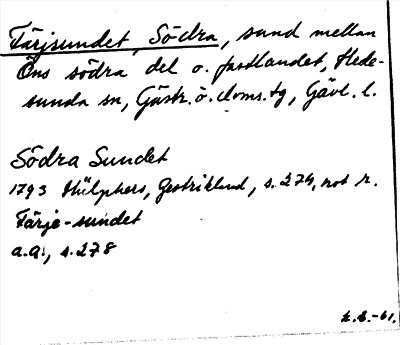 Färjsundet, Södra, sund mellan
Öns södra del o. fastlandet, Hede-
sunda sn, Gästr. ö. doms. tg, Gävl. l.
Södra Sundet
1793 Hülphers, Gestrikland, s. 274, not r.
Färje-sundet
a.a., s. 278
-61.